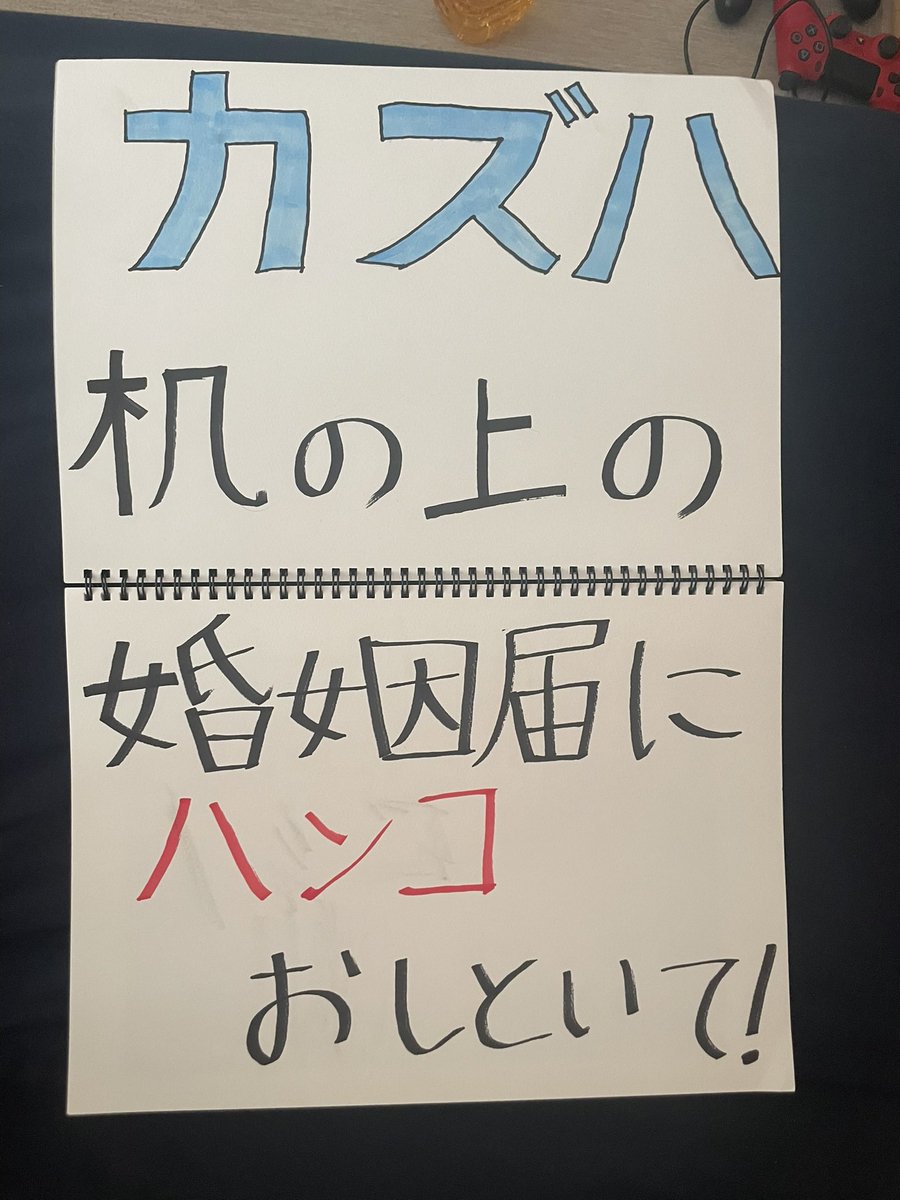 カズハ
机の上の
婚姻届に
ハンコ
おしといて!